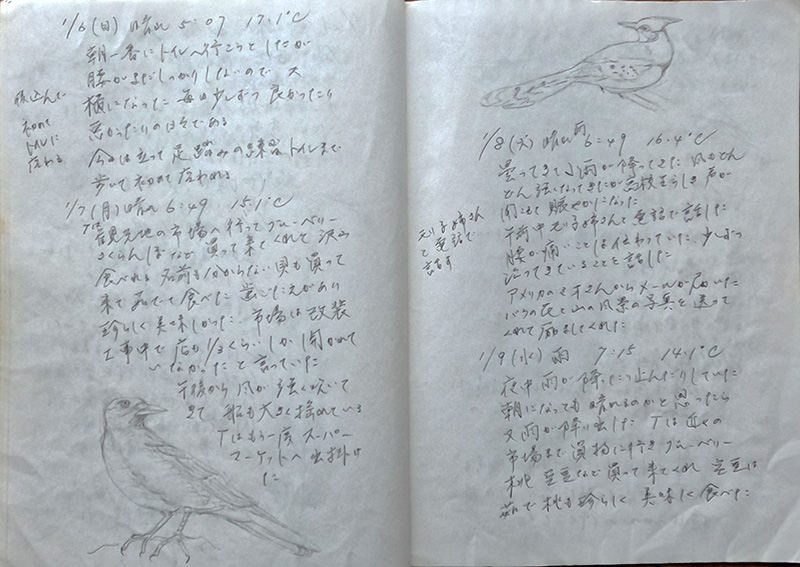 1/6(日) 晴れ 5:07 17.1℃
朝一番にトイレへ行こうとしたが
腰がまだしっかりしないので 又
横になった 毎日少しずつ 良かったり
悪かったりの日々である
今日は立って足踏みの練習 トイレまで
歩いて初めて座われる
初めて
トイレに
座わる
1/7(月) 晴れ 6:49 15.1℃
Tが観光地の市場へ行ってブルーベリー
さくらんぼなど買って来てくれて沢山
食べれる 名前も分からない貝も買って
来てゆでて食べた 歯ごたえがあり
珍らしく美味しかった 市場は改装
工事中で店も1/3くらいしか開かれて
いなかったと言っていた
午後から風が強く吹いて
きて 船も大きく揺れている
Tはもう一度スーパー
マーケットへ出掛け
た
1/8(火) 晴れ 雨 6:49 16.4℃
曇ってきて小雨が降ってきた 風もどん
どん強くなってきたが高校生らしき声が
聞こえて賑やかになった
午前中 姉さんと電話で話した
腰が痛いことは伝わっていた 少しずつ
治ってきていることを話した
姉さん
と電話で
話す
アメリカの さんからメールが届いた
バラの花と山の風景の写真を送って
くれて励ましてくれた
1/9(水) 雨 7:15 14.1℃
夜中雨が降ったり止んだりしていた
朝になっても晴れるのかと思ったら
又雨が降り出した Tは近くの
市場まで買物に行き ブルーベリー
桃 豆など買って来てくれ 豆は
茹で桃も珍らしく 美味しく食べた